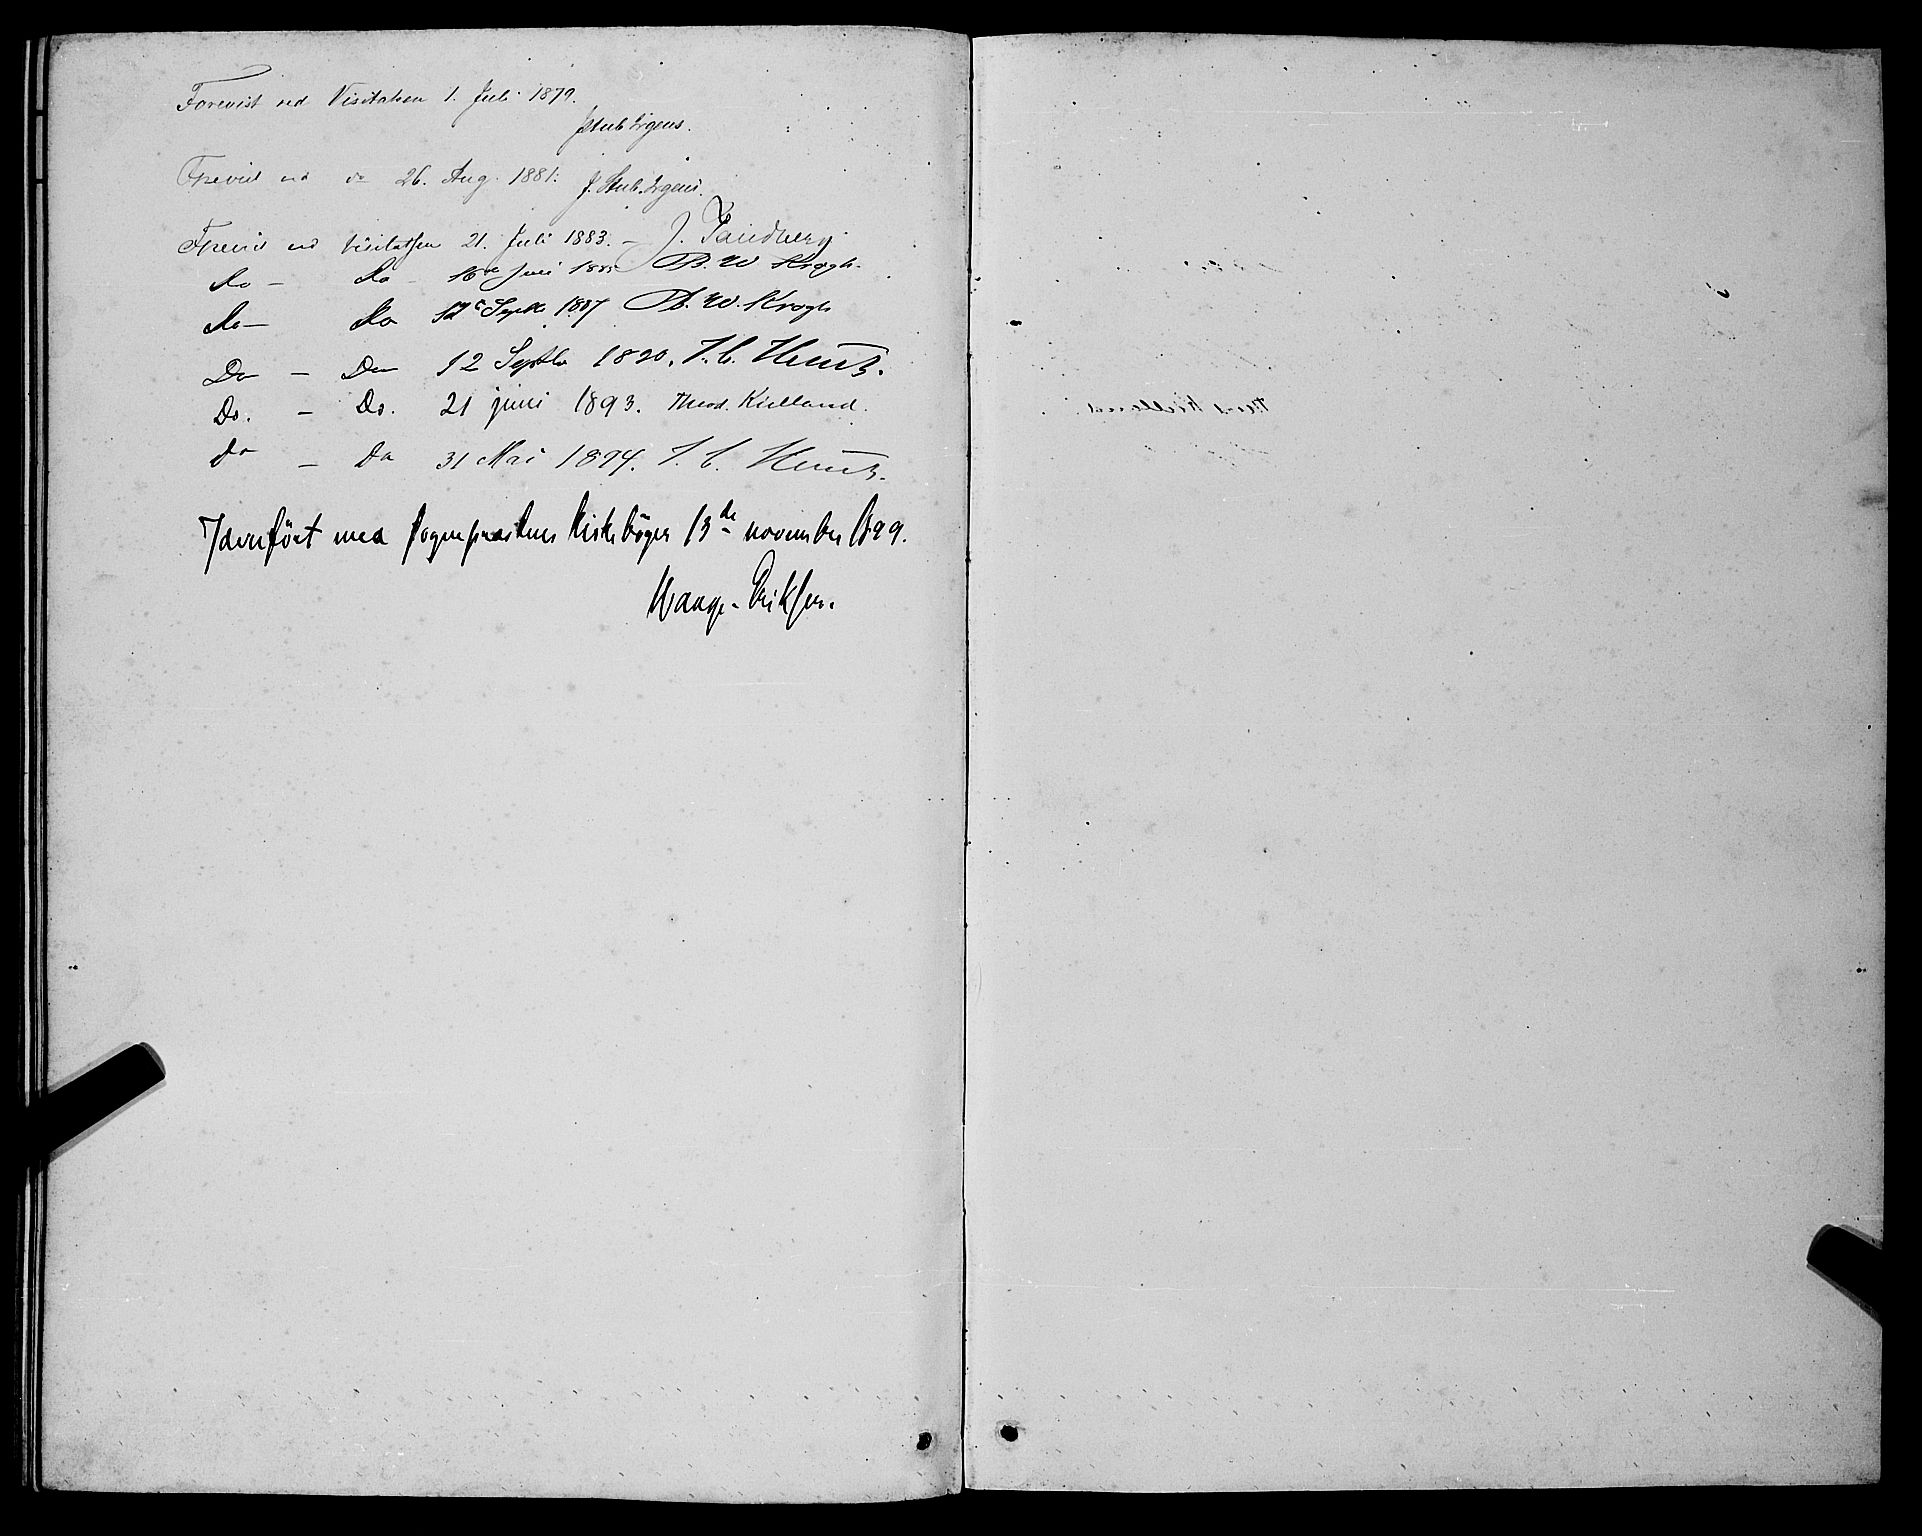 Forevist ved Visitatsen 1. Juli 1879.
J Stub Irgens.
Forevist ved do 26. Aug. 1881. J. Stub. Irgens.
Forevist ved Visitatsen 21. Juli 1883. – J. Sandberg
do – do 16de Juni 1885 B. W Krogh.
do – do Septbr 1887 B. W. Krogh
Do – Do 12 Septbr 1890. J. C. Heuch.
Do. – Do. 21 juni 1893. Theod. Kielland.
do – do 31 Mai 1894. J. C. Heuch.
Jævnført med sognepræstens kirkebøger 13de november 1899.
Haage- Eriksen.